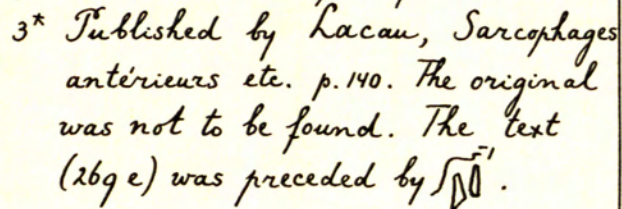 3* Published by Lacau, Sarcophages
antérieurs etc. p. 140. The original
was not to be found. The text
(269 e) was preceded by